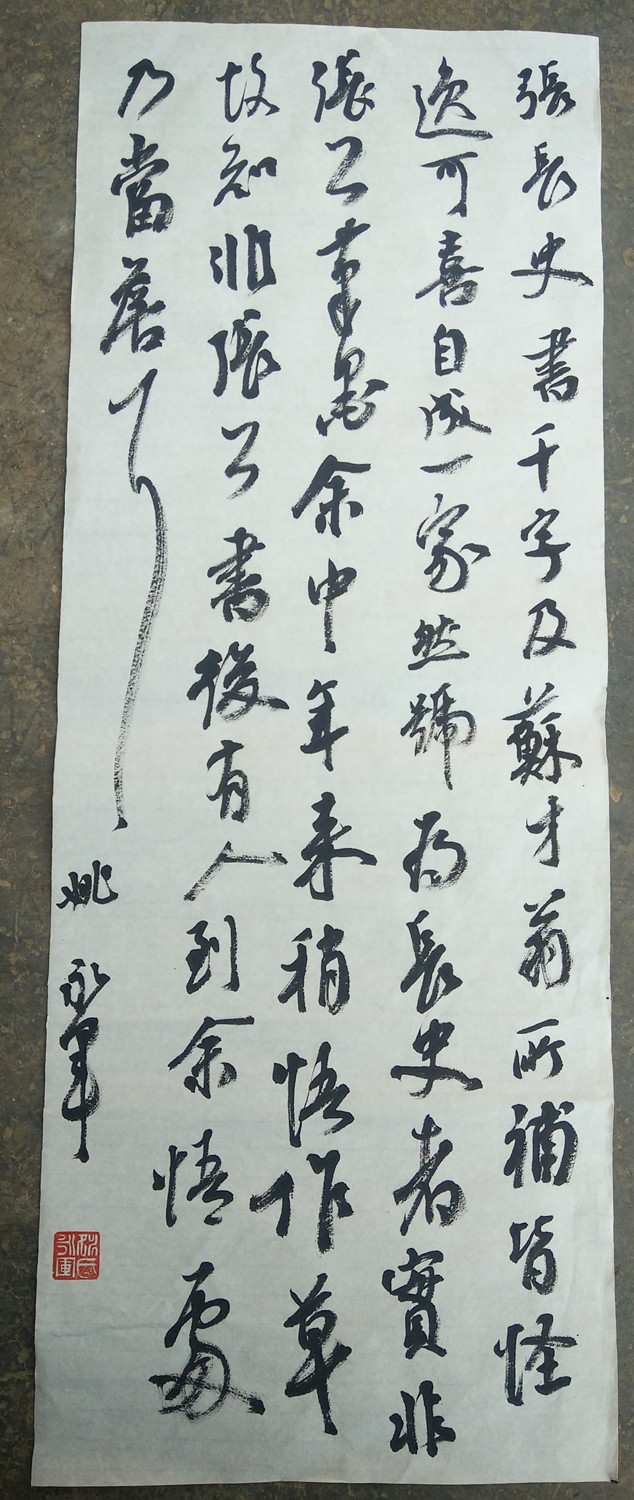 張長史書千字及蘇才翁所補皆怪
逸可喜自成一家然號為長史者實非
張公筆墨余中年来稍悟作草
故知非張公書後有人到余悟處
乃當荅耳
姚永軍